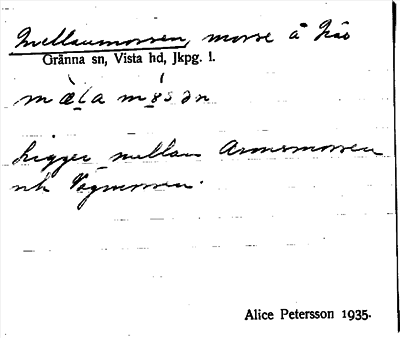 Mellanmossen, mosse å Näs
Gränna sn, Vista hd, Jkpg. l.
mæ̀l̠a mó̠sən
Ligger mellan mossen
och Vagnmossen.
Alice Petersson 1935.